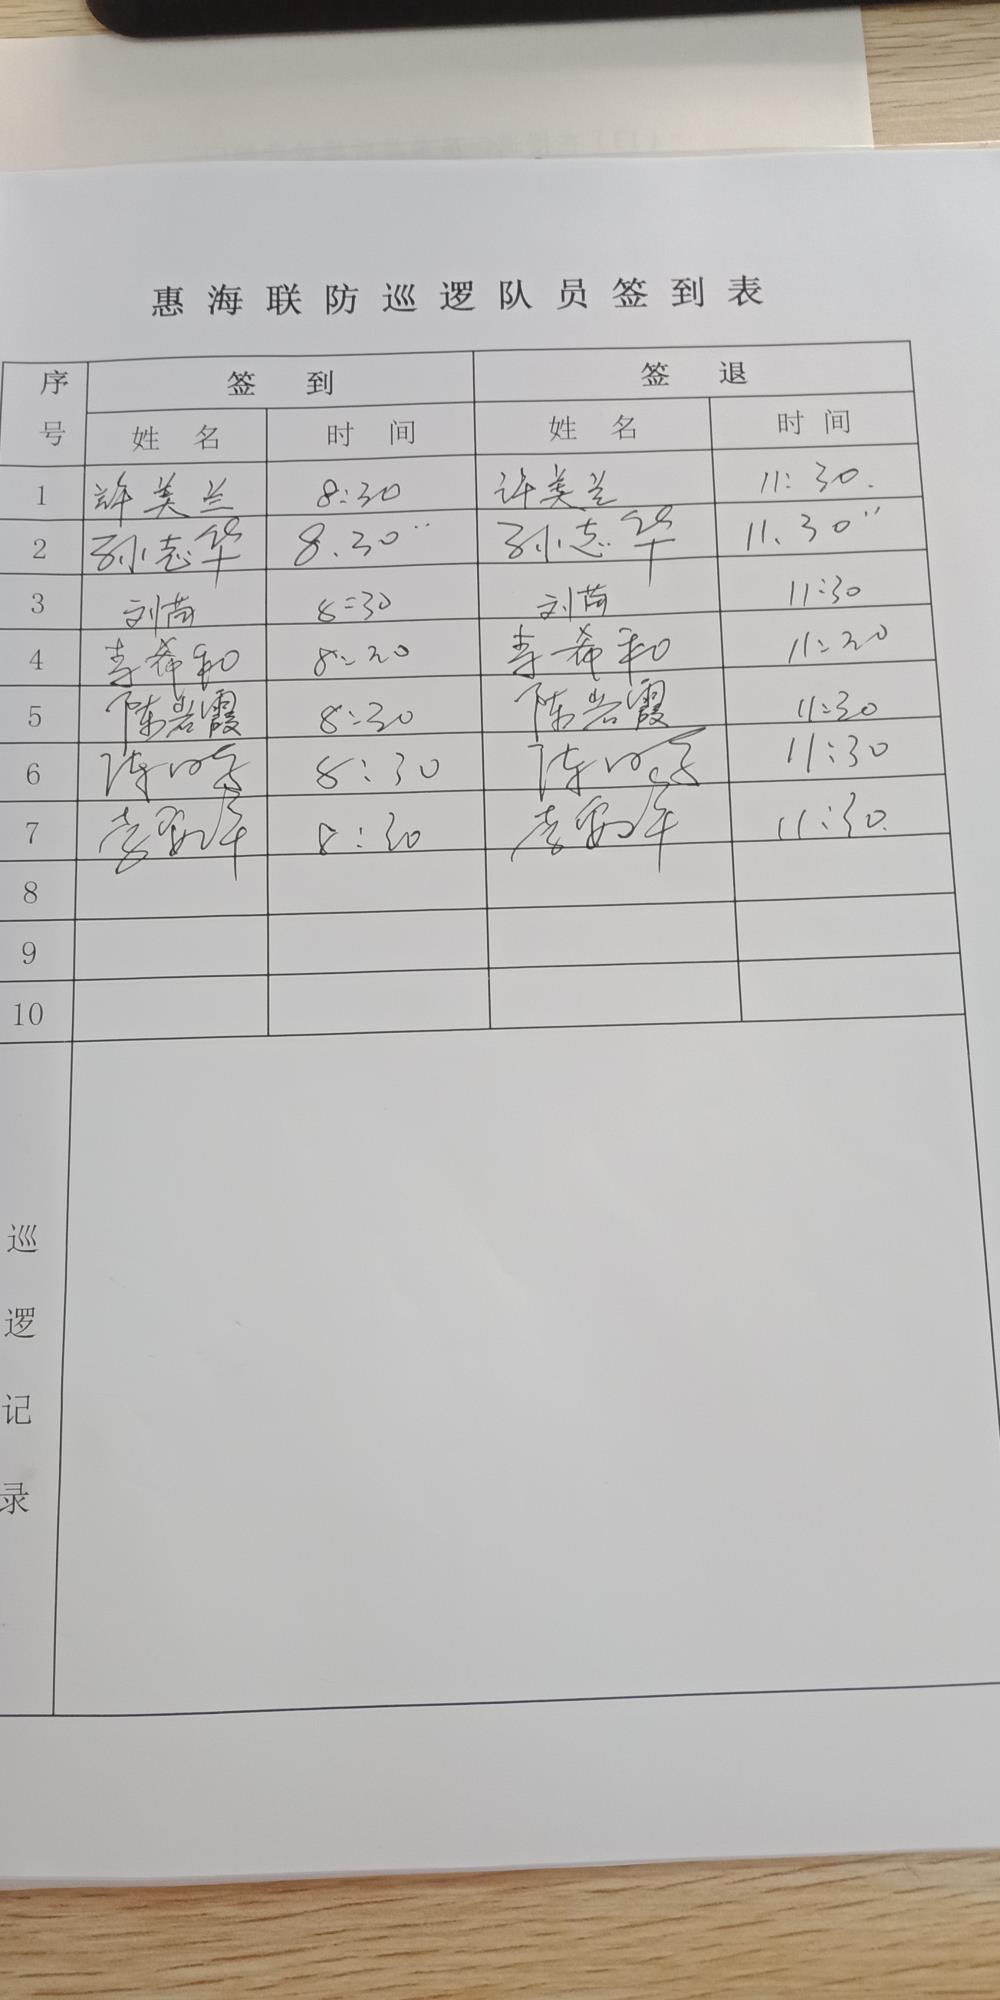 惠海联防巡逻队员签到表
序号 签到 签退
姓名 时间 姓名 时间
1 许美兰 8:30 许美兰 11:30.
2 孙志华 8.30 孙志华 11.30
3 刘苗 8:30 刘苗 11:30
4 李希和 8:30 李希和 11:30
5 陈岩霞 8:30 陈岩霞 11:30
6 8:30 11:30
7 8:30 11:30.
8
9
10
巡逻记录